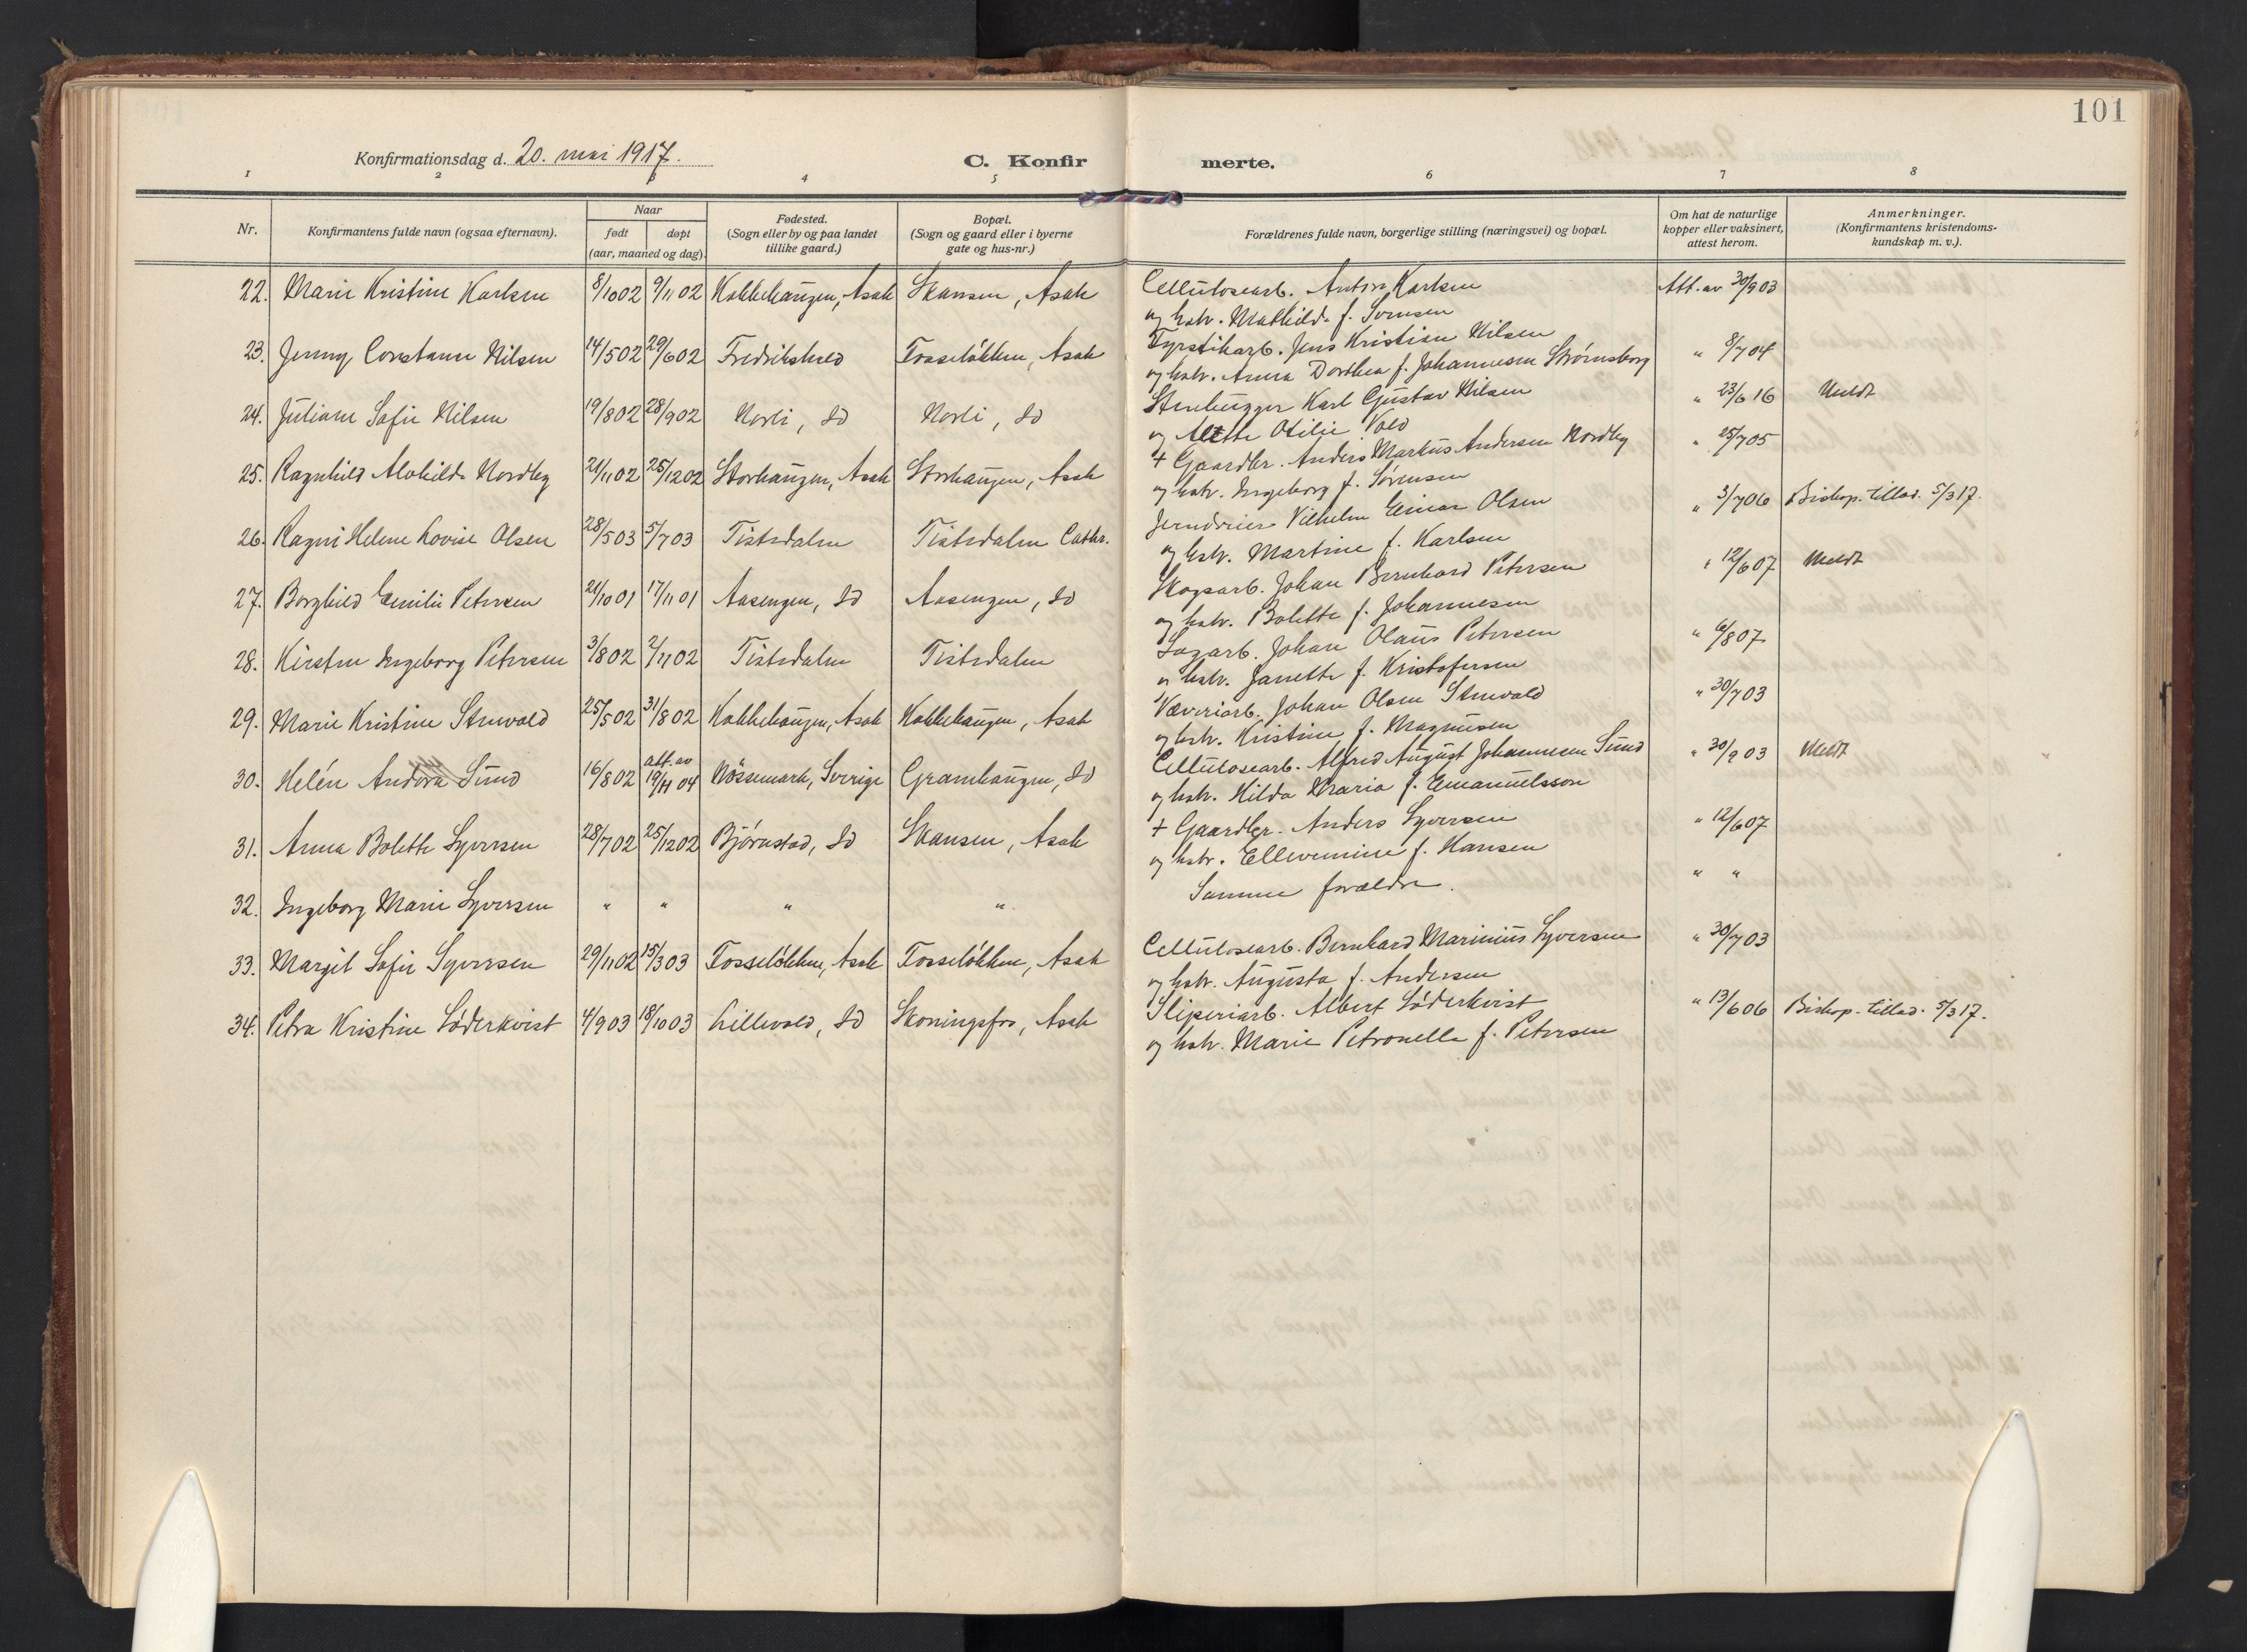 101
Konfirmationsdag d. 20. mai 1917.
C. Konfirmerte.
1 2 3 4 5 6 7 8
Nr.
Konfirmantens fulde navn (ogsaa efternavn).
Naar
født døpt
(aar, maaned og dag).
Fødested.
(Sogn eller by og paa landet
tillike gaard.)
Bopæl.
(Sogn og gaard eller i byerne
gate og hus-nr.)
Forældrenes fulde navn, borgerlige stilling (næringsvei) og bopæl.
Om hat de naturlige
kopper eller vaksinert,
attest herom.
Anmerkninger.
(Konfirmantens kristendoms-
kundskap m. v.).
22. Marie Kristine Karlsen 8/10 02 9/11 02 Kokkehaugen, Asak Skansen, Asak Cellulosearb. Anton Karlsen Att. av 30/9 03
og hstr. Mathilde f. Sørensen
23. Jenny Constanse Nilsen 14/5 02 29/6 02 Fredrikshald Fosseløkken, Asak Fyrstikarb. Jens Kristian Nilsen " 8/7 04
og hstr. Anna Dorthea f. Johannesen Strømsborg
24. Juliane Sofie Nilsen 19/8 02 28/9 02 Norli, Id Norli, Id Stenhugger Karl Gustav Nilsen " 23/6 16 Meldt
og Alette Otilie Vold
25. Ragnhild Alvhilde Nordby 21/11 02 25/12 02 Storhaugen, Asak Storhaugen, Asak + Gaardbr. Anders Markus Andersen Nordby " 25/7 05
og hstr. Ingeborg f. Sørensen
26. Ragni Helene Lovise Olsen 28/5 03 5/7 03 Tistedalen Tistedalen Cathr. Jerndreier Vilhelm Einar Olsen " 3/7 06 Biskop. tillad. 5/3 17.
og hstr. Martine f. Karlsen
27. Borghild Emilie Petersen 21/10 01 17/11 01 Aasengen, Id Aasengen, Id Skogsarb. Johan Bernhard Petersen " 12/6 07 Meldt
og hstr. Bolette f. Johannesen
28. Kirsten Ingeborg Petersen 3/8 02 2/11 02 Tistedalen Tistedalen Sagarb. Johan Olaus Petersen " 6/8 07
og hstr. Janette f. Kristofersen
29. Marie Kristine Stenvold 25/5 02 31/8 02 Kokkehaugen, Asak Kokkehaugen, Asak Væveriarb. Johan Olsen Stenvold " 30/7 03
og hstr. Kristine f. Magnusen
30. Helén Andora Sund 16/8 02 att. av 19/11 04 Nössemark, Sverige Gramhaugen, Id Cellulosearb. Alfred August Johannesen Sund " 30/9 03 Meldt
og hstr. Hilda Maria f. Emanuelsson
31. Anna Bolette Syversen 28/7 02 25/12 02 Bjørnstad, Id Skansen, Asak + Gaardbr. Anders Syversen " 12/6 07
og hstr. Ellevemine f. Hansen
32. Ingeborg Marie Syversen " " " " Samme forældre. " "
33. Margit Sofie Syversen 29/11 02 15/3 03 Fosseløkken, Asak Fosseløkken, Asak Cellulosearb. Bernhard Marinius Syversen " 30/7 03
og hstr. Augusta f. Andersen
34. Petra Kristine Søderkvist 4/9 03 18/10 03 Lillevold, Id Skoningsfos, Asak Sliperiarb. Albert Søderkvist " 13/6 06 Biskop. tillad. 5/3 17.
og hstr. Marie Petronelle f. Petersen